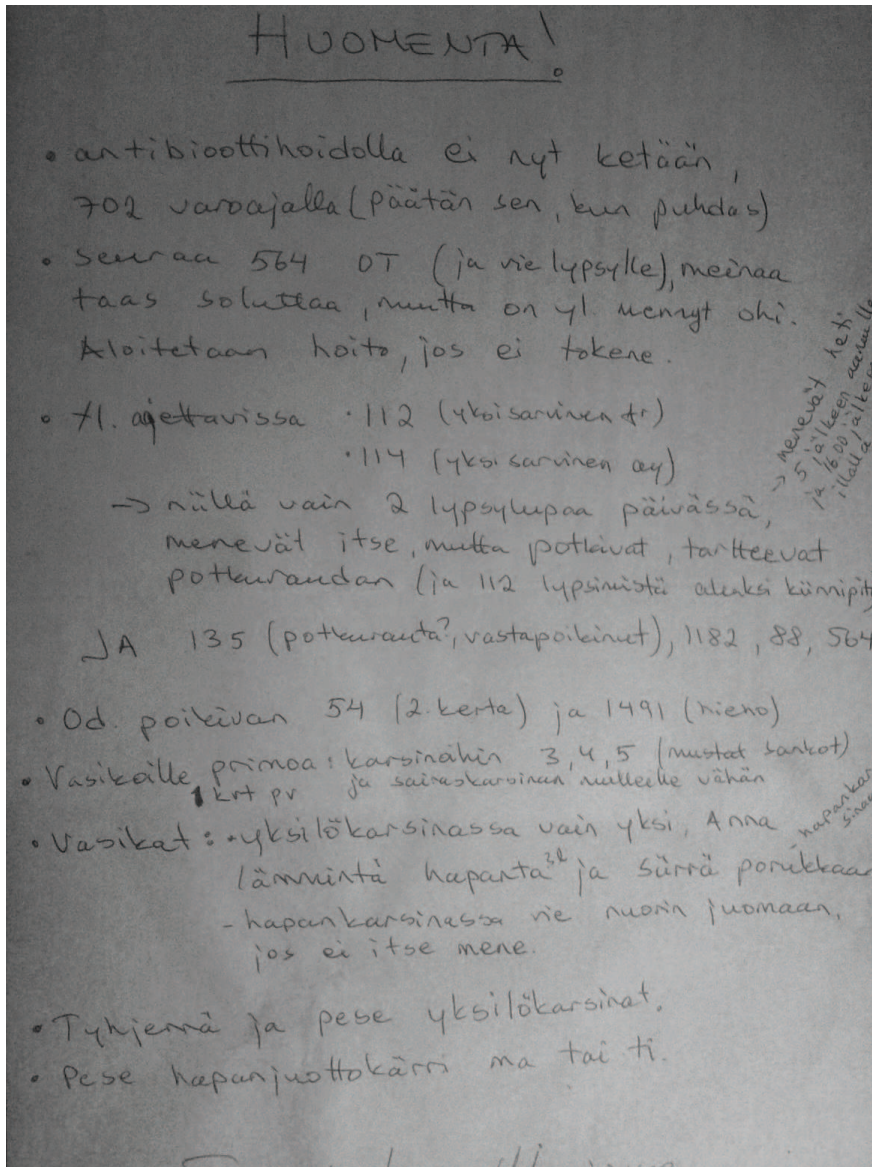 HUOMENTA!
• antibioottihoidolla ei nyt ketään,
702 varoajalla (päätän sen, kun puhdas)
• Seuraa 564 OT (ja vie lypsylle), meinaa
taas soluttaa, mutta on yl. mennyt ohi.
Aloitetaan hoito, jos ei tokene.
• tl. ajettavissa • 112 (yksisarvinen fr)
• 114 (yksisarvinen ay)
→ menevät heti
5 jälkeen aamulla
ja 16.00 jälkeen
illalla
→ niillä vain 2 lypsylupaa päivässä,
menevät itse, mutta potkivat, tartteevat
potkuraudan (ja 112 lypsimistä aluksi kiinnipit
JA 135 (potkurauta?, vastapoikinut), 1182, 88, 564
• Od. poikivan 54 (2. kerta) ja 1491 (hieho)
• Vasikoille primoa: karsinahin 3, 4, 5 (mustat sankot)
1 krt pv ja sairaskarsinan mulleille vähän
• Vasikat: - yksilökarsinassa vain yksi, Anna
lämmintä hapanta 3l ja siirrä porukkaan
hapankar
sinaa
- hapankarsinassa vie nuorin juomaan,
jos ei itse mene.
• Tyhjennä ja pese yksilökarsinat.
• Pese hapanjuottokärri ma tai ti.